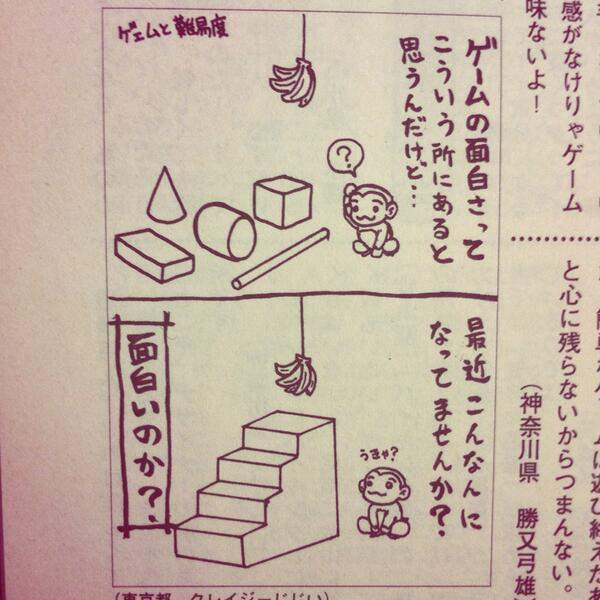 ゲェムと難易度
ゲームの面白さって
こういう所にあると
思うんだけど…
?
最近こんなんに
なってませんか?
うまゃ?
面白いのか?
(東京都 クレイジーじじい)
感がなけりゃゲーム
味ないよ!
と心に残らないからつまんない。
(神奈川県 勝又弓雄